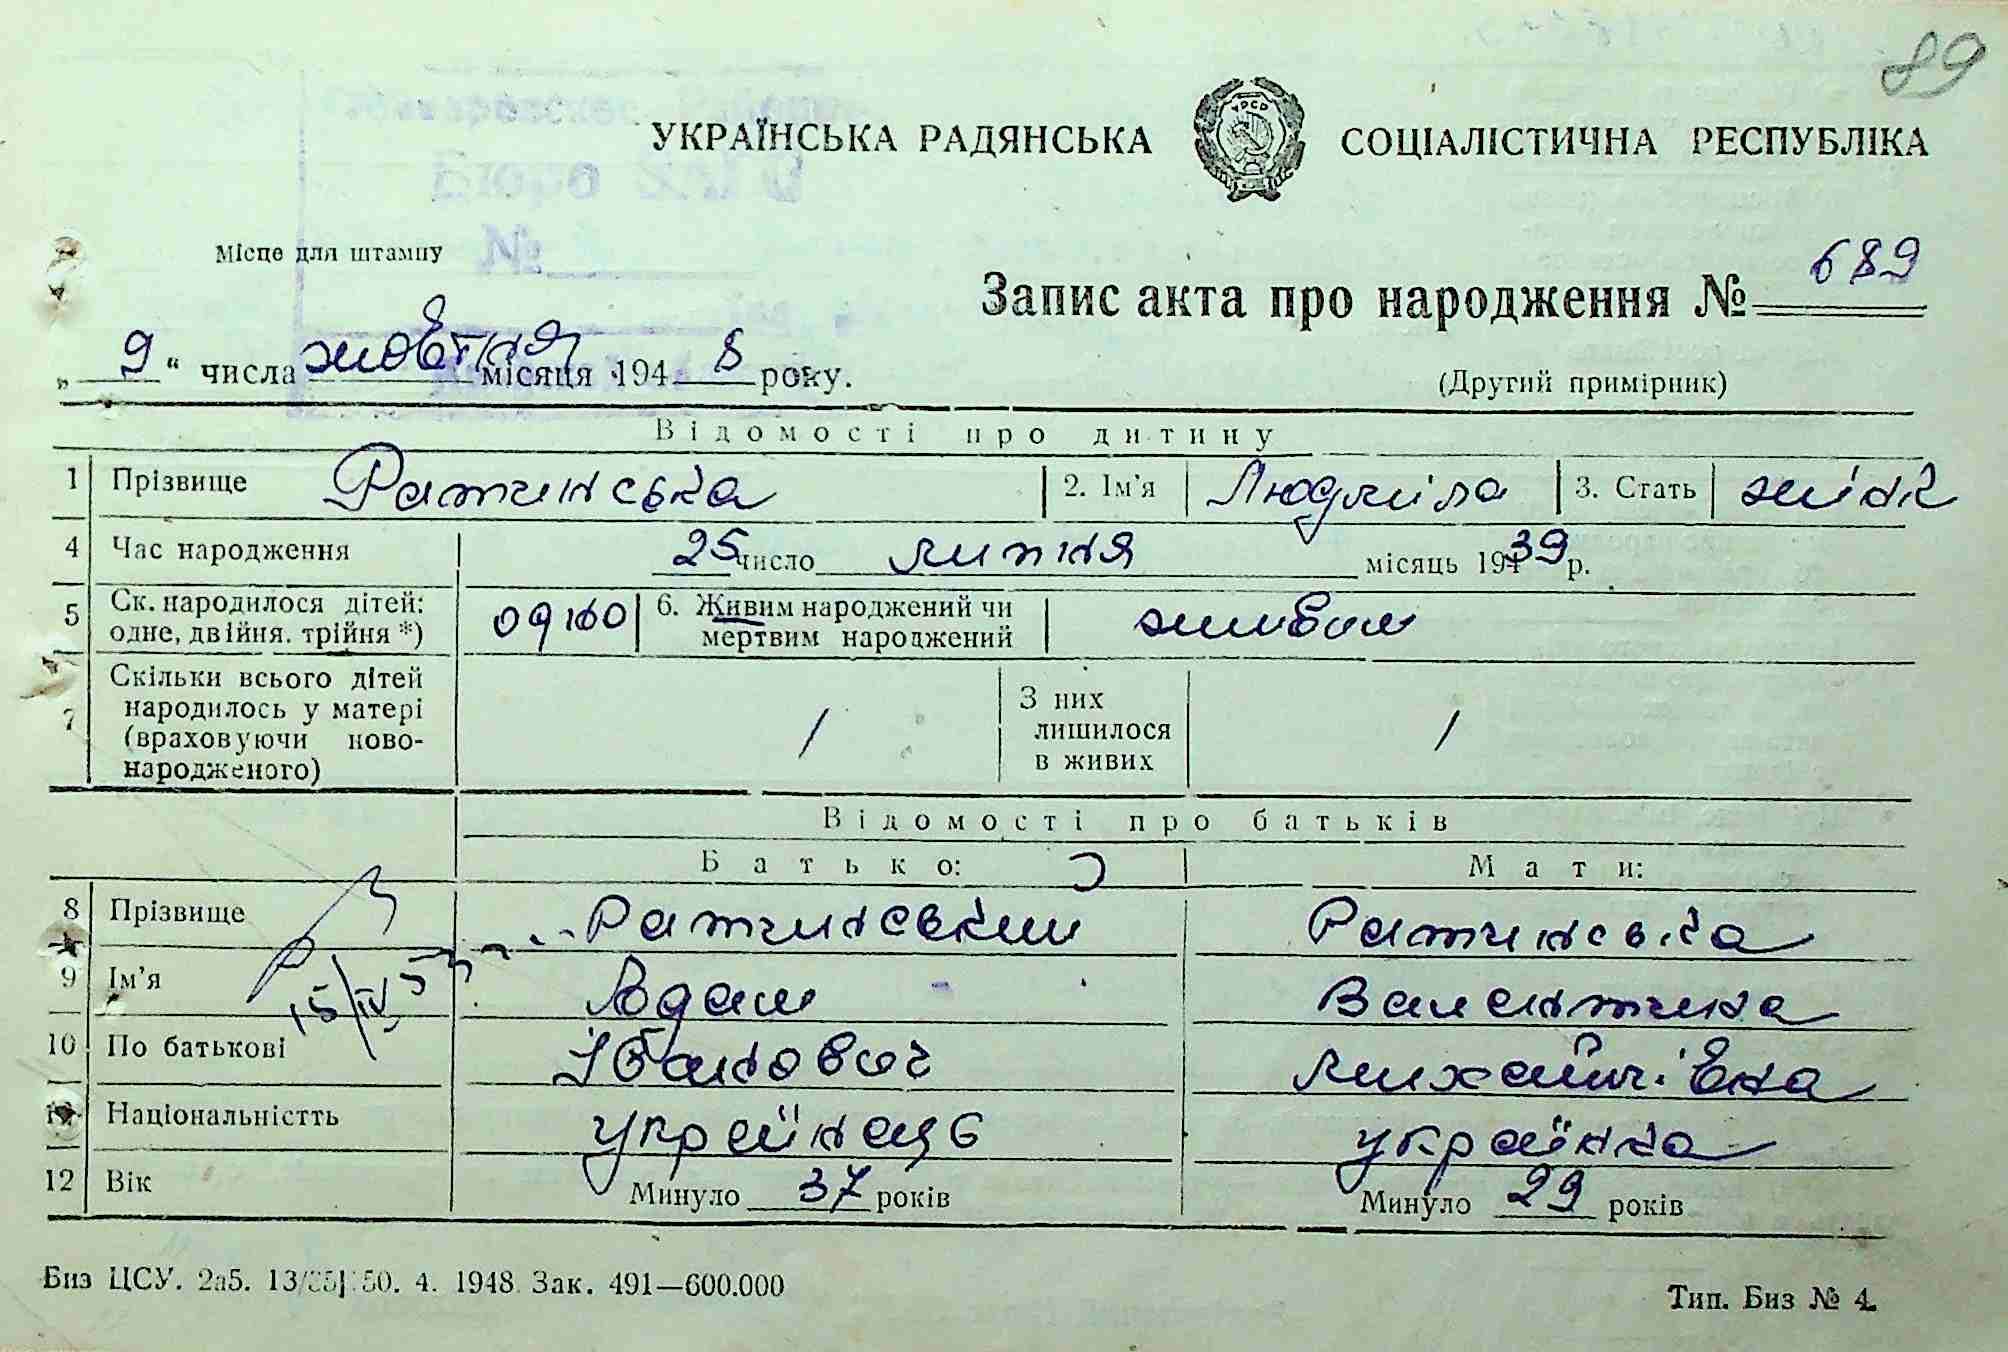 89
УКРАЇНСЬКА РАДЯНСЬКА СОЦІАЛІСТИЧНА РЕСПУБЛІКА
УРСР
Бюро
№
Місце для штампу
Запис акта про народження № 689
„ 9 “ числа жовтня місяця 194 8 року.
(Другий примірник)
Відомості про дитину
1 Прізвище Ратинська 2. Ім'я Людміла 3. Стать жінк
4 Час народження 25 число липня місяць 19439 р.
5 Ск. народилося дітей: одне, двійня. трійня *) одно 6. Живим народжений чи мертвим народжений живим
7 Скільки всього дітей народилось у матері (враховуючи новонародженого) / З них лишилося в живих /
Відомості про батьків
Батько: Мати:
8 Прізвище Ратинський Ратинська
9 Ім'я Адам Валентина
15/IV
10 По батькові Іванович Михайлівна
11 Національністть українець українка
12 Вік Минуло 37 років Минуло 29 років
Биз ЦСУ. 2а5. 50. 4. 1948 Зак. 491—600.000
Тип. Биз № 4.